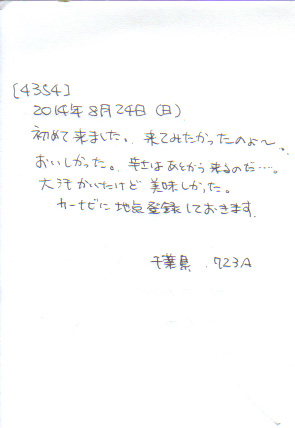 [4354]
2014年8月24日(日)
初めて来ました。来てみたかったのよ〜。
おいしかった。辛さはあとから来るのだ……。
大汗かいたけど美味しかった。
カーナビに地点登録しておきます。
千葉県 723A